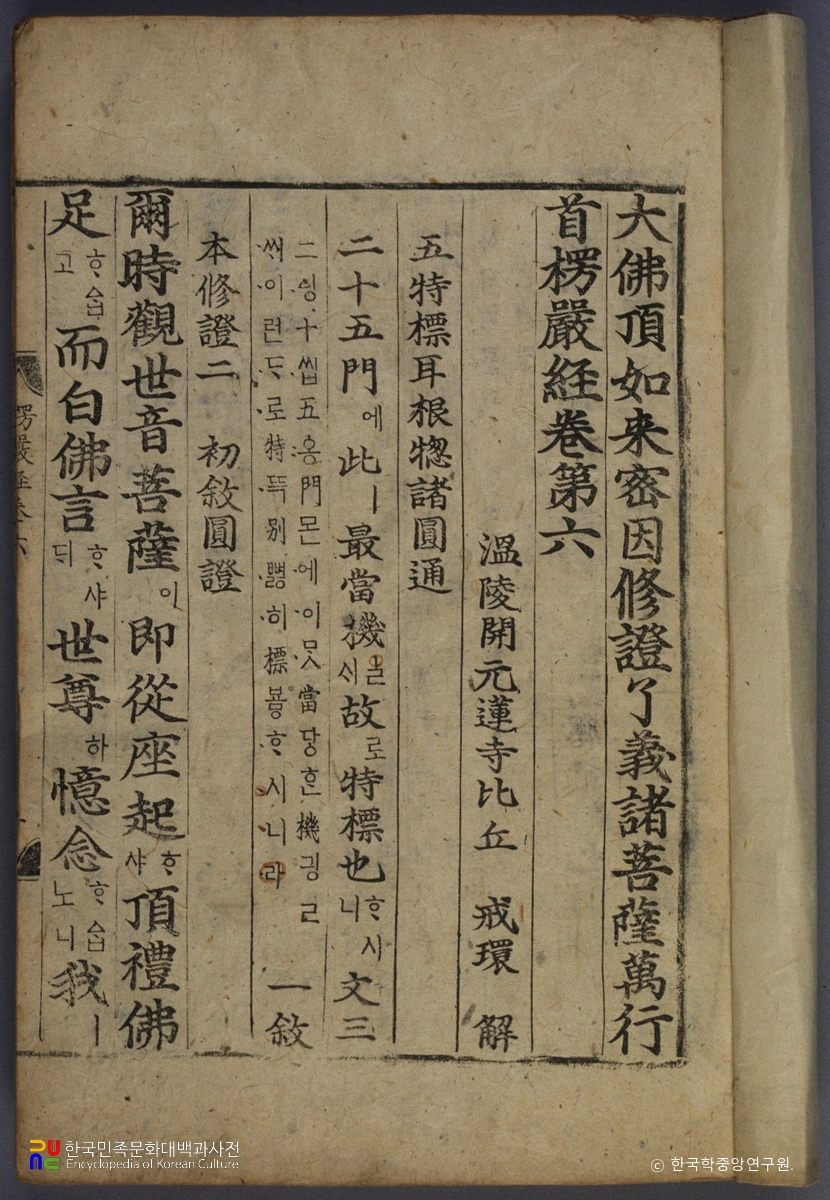 大佛頂如来密因修證了義諸菩薩萬行
首楞嚴経卷第六
溫陵開元蓮寺比丘 戒環 解
五特標耳根惣諸圓通
二十五門에此ㅣ最當機ㄹ시故로特標也ᄒᆞ시니文三
二ᅀᅵᆼ十씹五옹門몬에이ᄆᆞᆺ當당ᄒᆞᆫ機긩ㄹ
ᄊᆡ이런ᄃᆞ로特뜩別ᄈᆑᇙ히標ᄑᆈᇢᄒᆞ시니라
一敘
本修證二 初敘圓證
爾時觀世音菩薩이即從座起ᄒᆞ샤頂禮佛
足ᄒᆞᅀᆞᆸ고而白佛言ᄒᆞ샤ᄃᆡ世尊하憶念ᄒᆞᅀᆞᆸ노니我ㅣ
楞嚴経卷六
한국민족문화대백과사전
Encyclopedia of Korean Culture
ⓒ 한국학중앙연구원.